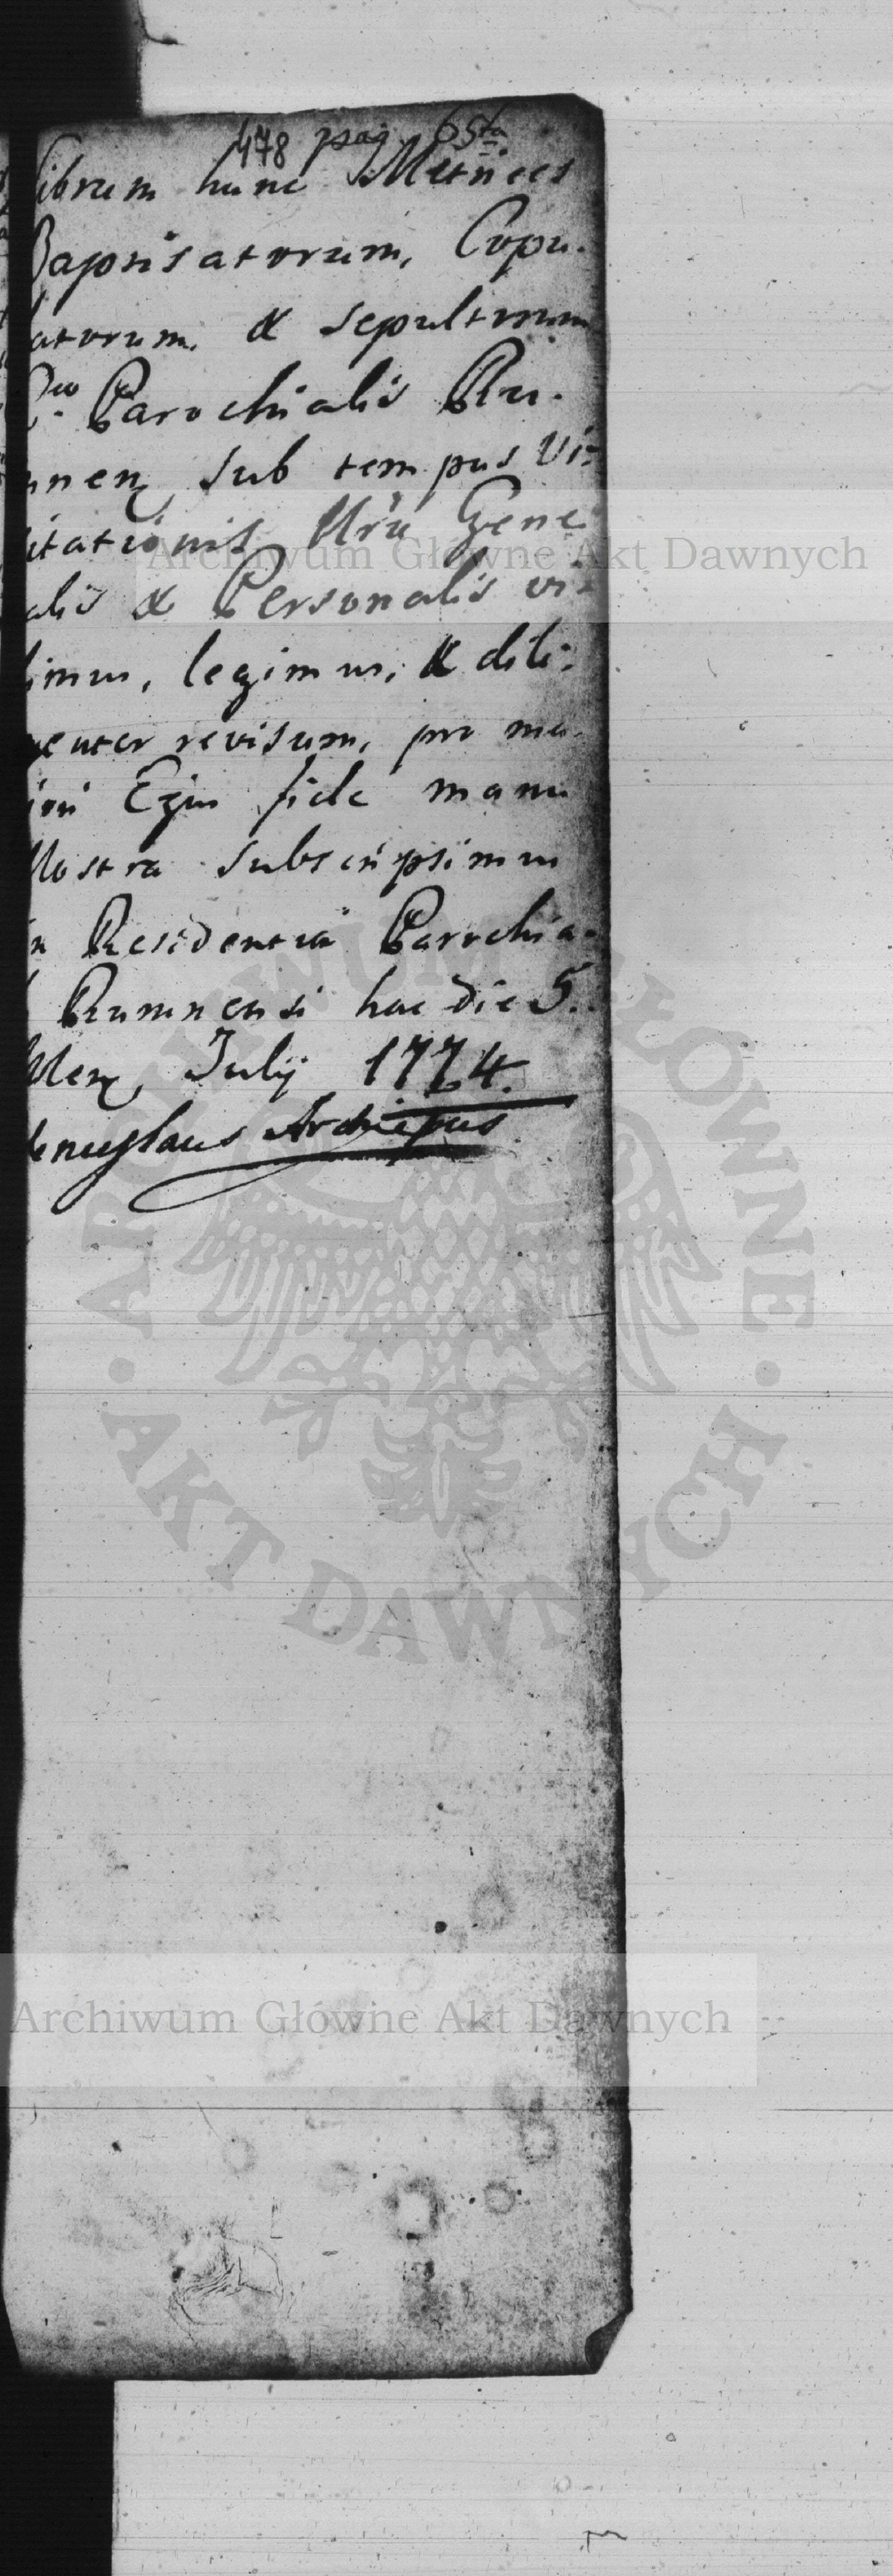 478 pag. 65ta
Librum hunc Metrices
Baptisatorum, Copu-
latorum, & Sepultorum
Parochialis Ru-
mnen, sub tempus Vi-
sitationis Nrae Gene-
alis & Personalis vi-
dimus, legimus, & dili-
genter revisum, pro ma-
iori Ejus fide manu
Nostra subscripsimus
in Residentia Parochia-
Rumnensi hac die 5.
Men, Julij 1774.
Archieppus
Archiwum Główne Akt Dawnych
ARCHIWUM GŁÓWNE · AKT DAWNYCH ·
Archiwum Główne Akt Dawnych